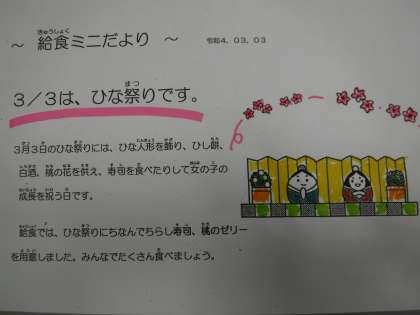 ～ 給食ミニだより ～ 令和4．03．03
3／3は、ひな祭りです。
3月3日のひな祭りには、ひな人形を飾り、ひし餅、
白酒、桃の花を供え、寿司を食べたりして女の子の
成長を祝う日です。
給食では、ひな祭りにちなんでちらし寿司、桃のゼリー
を用意しました。みんなでたくさん食べましょう。